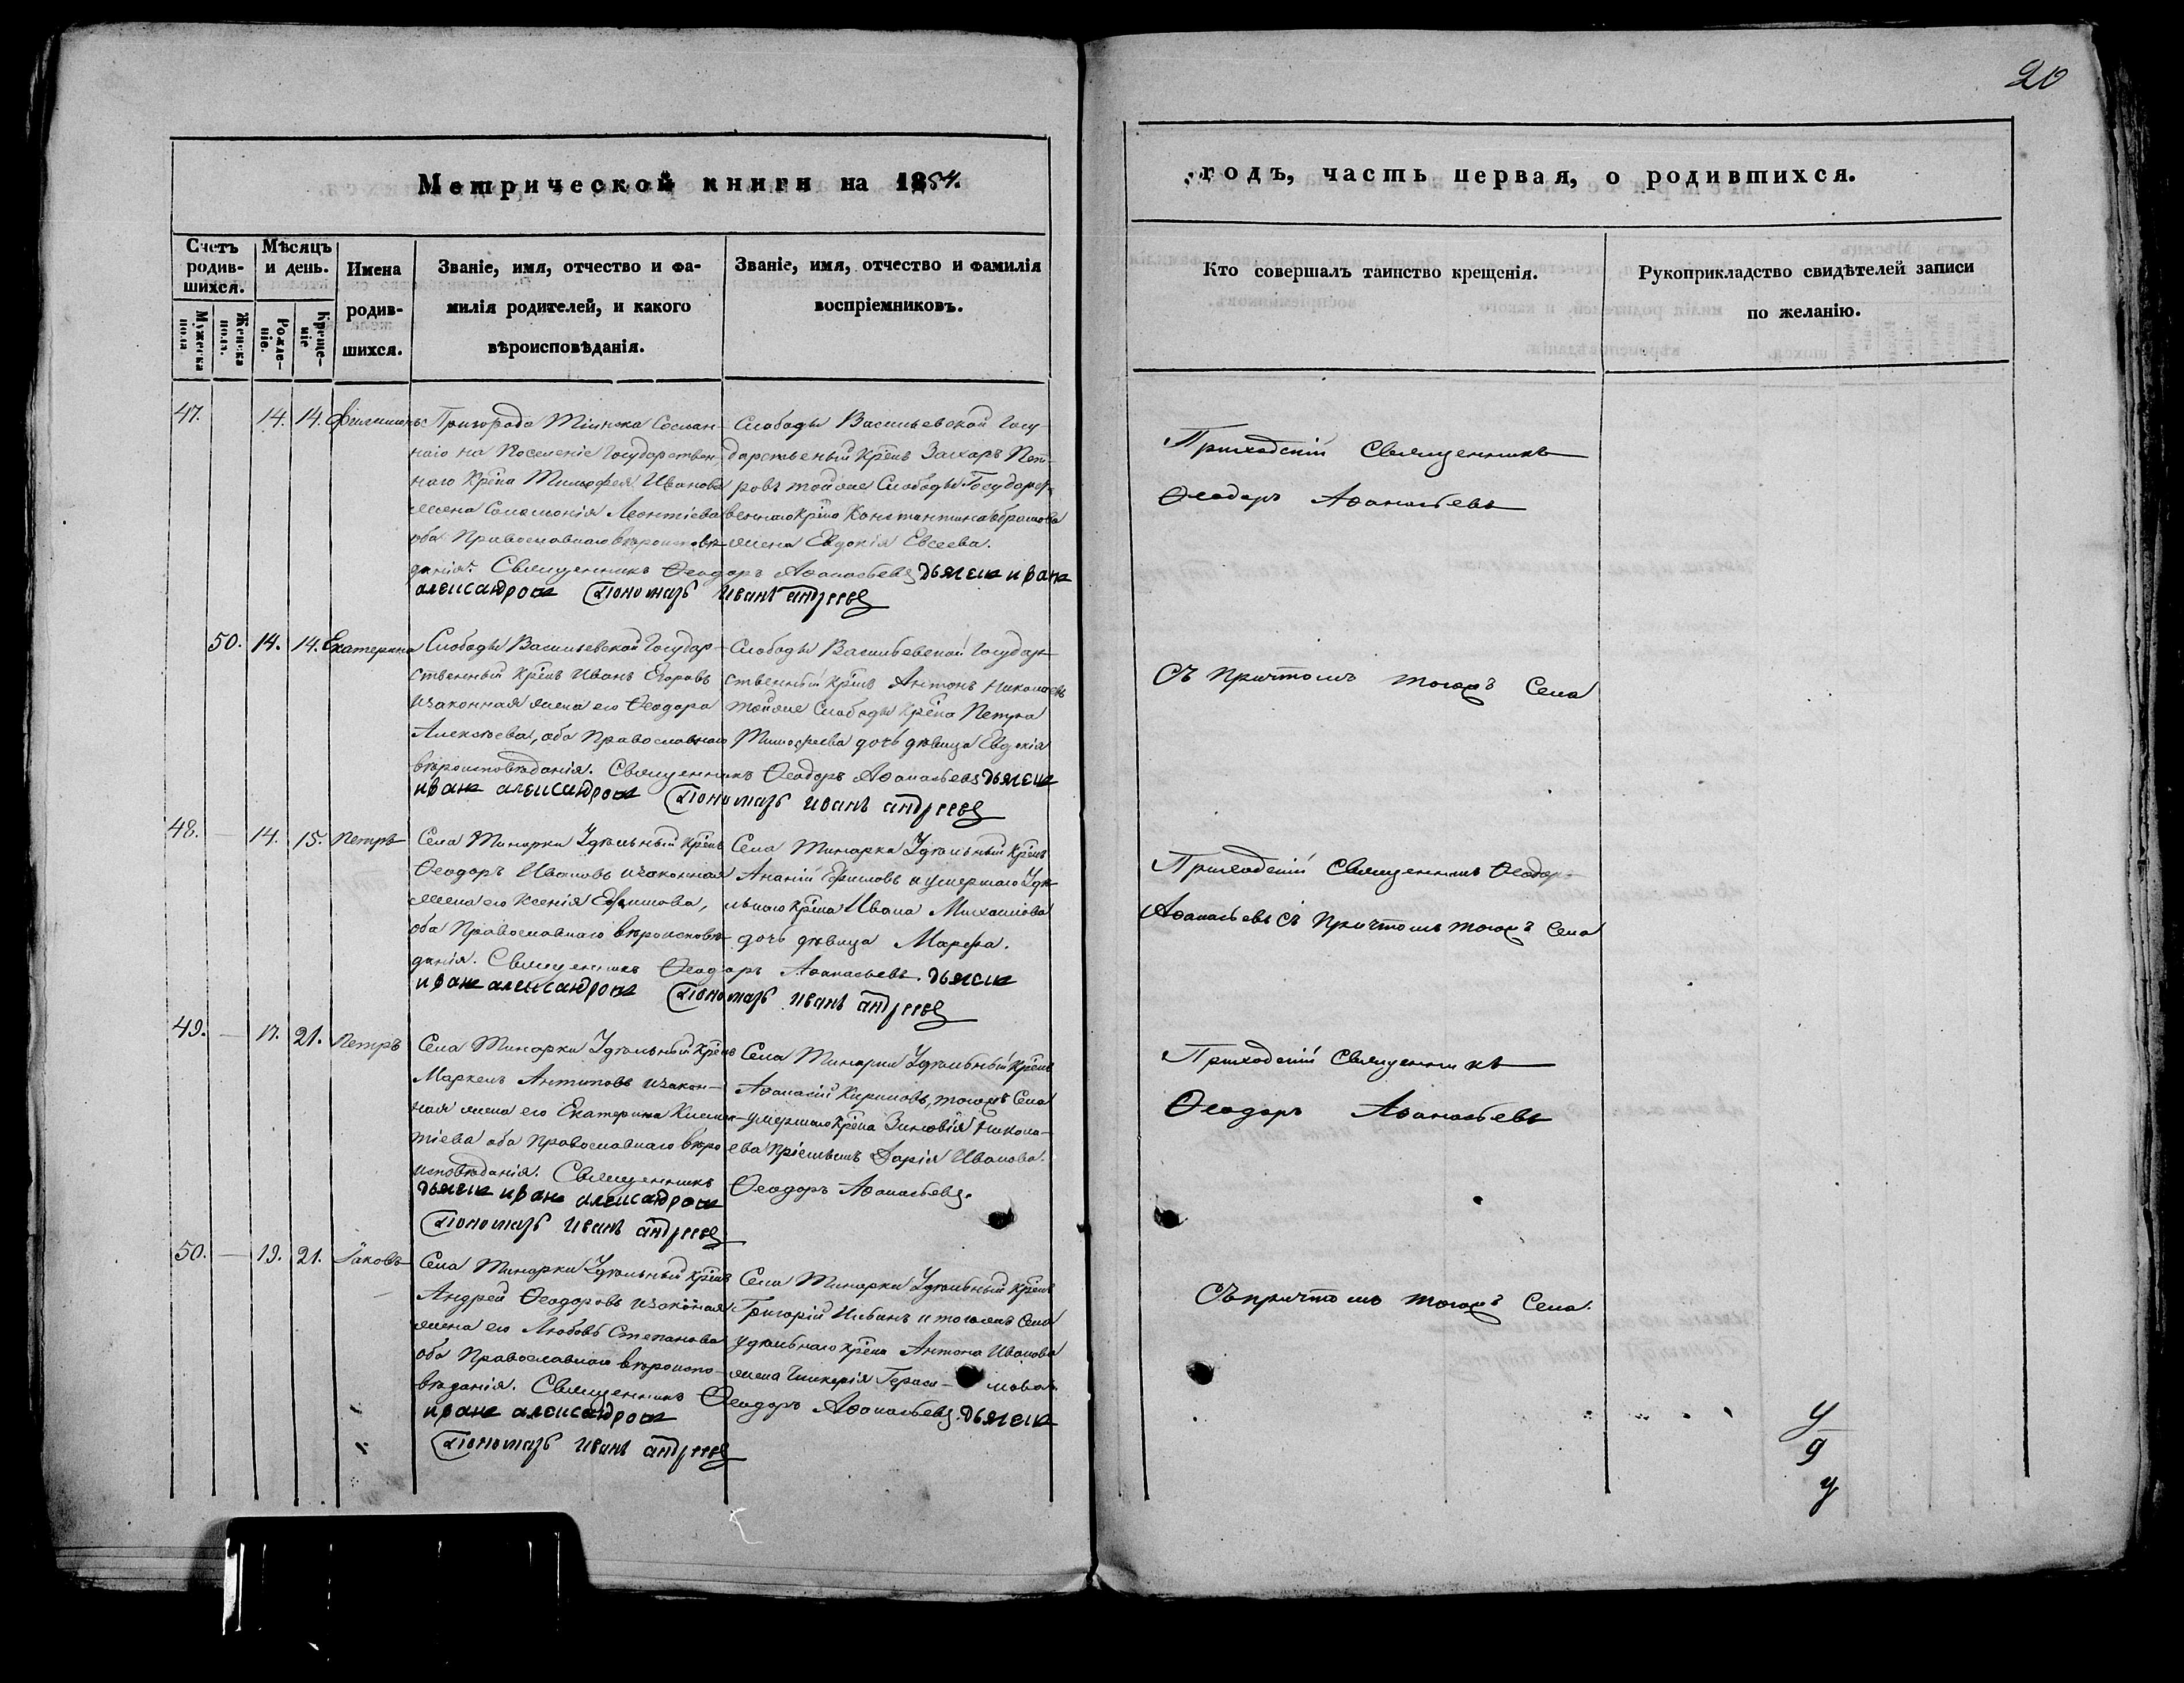 20
Метрической книги на 1854.
годъ, часть первая, о родившихся.
Счетъ родив-шихся.
Мѣсяцъ и день.
Мужеска пола
Женска пола.
Рожде-ніе.
Креще-ніе
Имена родив-шихся.
Званіе, имя, отчество и фа-
милія родителей, и какого
вѣроисповѣданія.
Званіе, имя, отчество и фамилія
воспріемниковъ.
Кто совершалъ таинство крещенія.
Рукоприкладство свидѣтелей записи
по желанію.
47. 14. 14.
Пригорода Тіинска Сослан-
наго на Поселеніе Государствен-
наго Крѣна Тимофея Иванова
жена Соломонія Леонтіева
оба Православнаго вѣроисповѣ-
данія. Священникъ Ѳеодоръ Аѳанасьевъ дьячекъ иванъ
александровъ Пономарь Иванъ андреевъ
Слободы Васильевской Госу-
дарственый Крѣнъ Захаръ Пет-
ровъ тойже Слободы Государст-
веннаго Крѣна Константина Абрамова
жена Евдокія Евсеева.
Приходскій Священникъ
Ѳеодоръ Аѳанасьевъ
50. 14. 14. Екатерина
Слободы Васильевской Государ-
ственный Крѣнъ Иванъ Егоровъ
изаконная жена его Ѳеодора
Алексѣева, оба Православнаго
вѣроисповѣданія. Священникъ Ѳеодоръ Аѳанасьевъ дьячекъ
иванъ александровъ Пономарь Иванъ андреевъ
Слободы Васильевской Государ-
ственный Крѣнъ Антонъ Николаевъ
тойже Слободы Крѣна Петра
Тимофеева дочь дѣвица Евдокія
Съ Причтомъ тогожъ Села
48. — 14. 15. Петръ
Села Тинарки Удѣльный Крѣнъ
Ѳеодоръ Ивановъ изаконная
жена его Ксенія Ефимова,
оба Православнаго вѣроисповѣ-
данія. Священникъ Ѳеодоръ Аѳанасьевъ. дьячекъ
иванъ александровъ Пономарь Иванъ андреевъ
Села Тинарка Удѣльный Крѣнъ
Ананій Ефимовъ и умершаго Удѣ-
льнаго Крѣна Ивана Михаилова
дочь дѣвица Марфа.
Приходскій Священникъ Ѳеодоръ
Аѳанасьевъ съ Причтомъ тогожъ Села
49. — 17. 21. Петръ
Села Тинарки Удѣльный Крѣнъ
Маркелъ Антиповъ изакон-
ная жена его Екатерина Климен-
тіева оба Православнаго вѣро
исповѣданія. Священникъ Ѳеодоръ Аѳанасьевъ.
дьячекъ иванъ александровъ
Пономарь Иванъ андреевъ
Села Тинарки Удѣльный Крѣнъ
Аѳанасій Кириловъ, тогожъ Села
умершаго Крѣна Зиновія Никола-
ева Пріемышъ Дарія Иванова.
Приходскій Священникъ
Ѳеодоръ Аѳанасьевъ
50. — 19. 21. Іаковъ
Села Тинарки Удѣльный Крѣнъ
Андрей Ѳеодоровъ изаконая
жена его Любовь Степанова
оба Православнаго вѣроиспо-
вѣданія. Священникъ Ѳеодоръ Аѳанасьевъ. дьячекъ
иванъ александровъ
Пономарь Иванъ андреевъ
Села Тинарки Удѣльный Крѣнъ
Григорій и тогожъ Села
удѣльнаго Крѣна Антона Иванова
жена Гликерія Гераси-мова.
Съ причтомъ тогожъ Села.